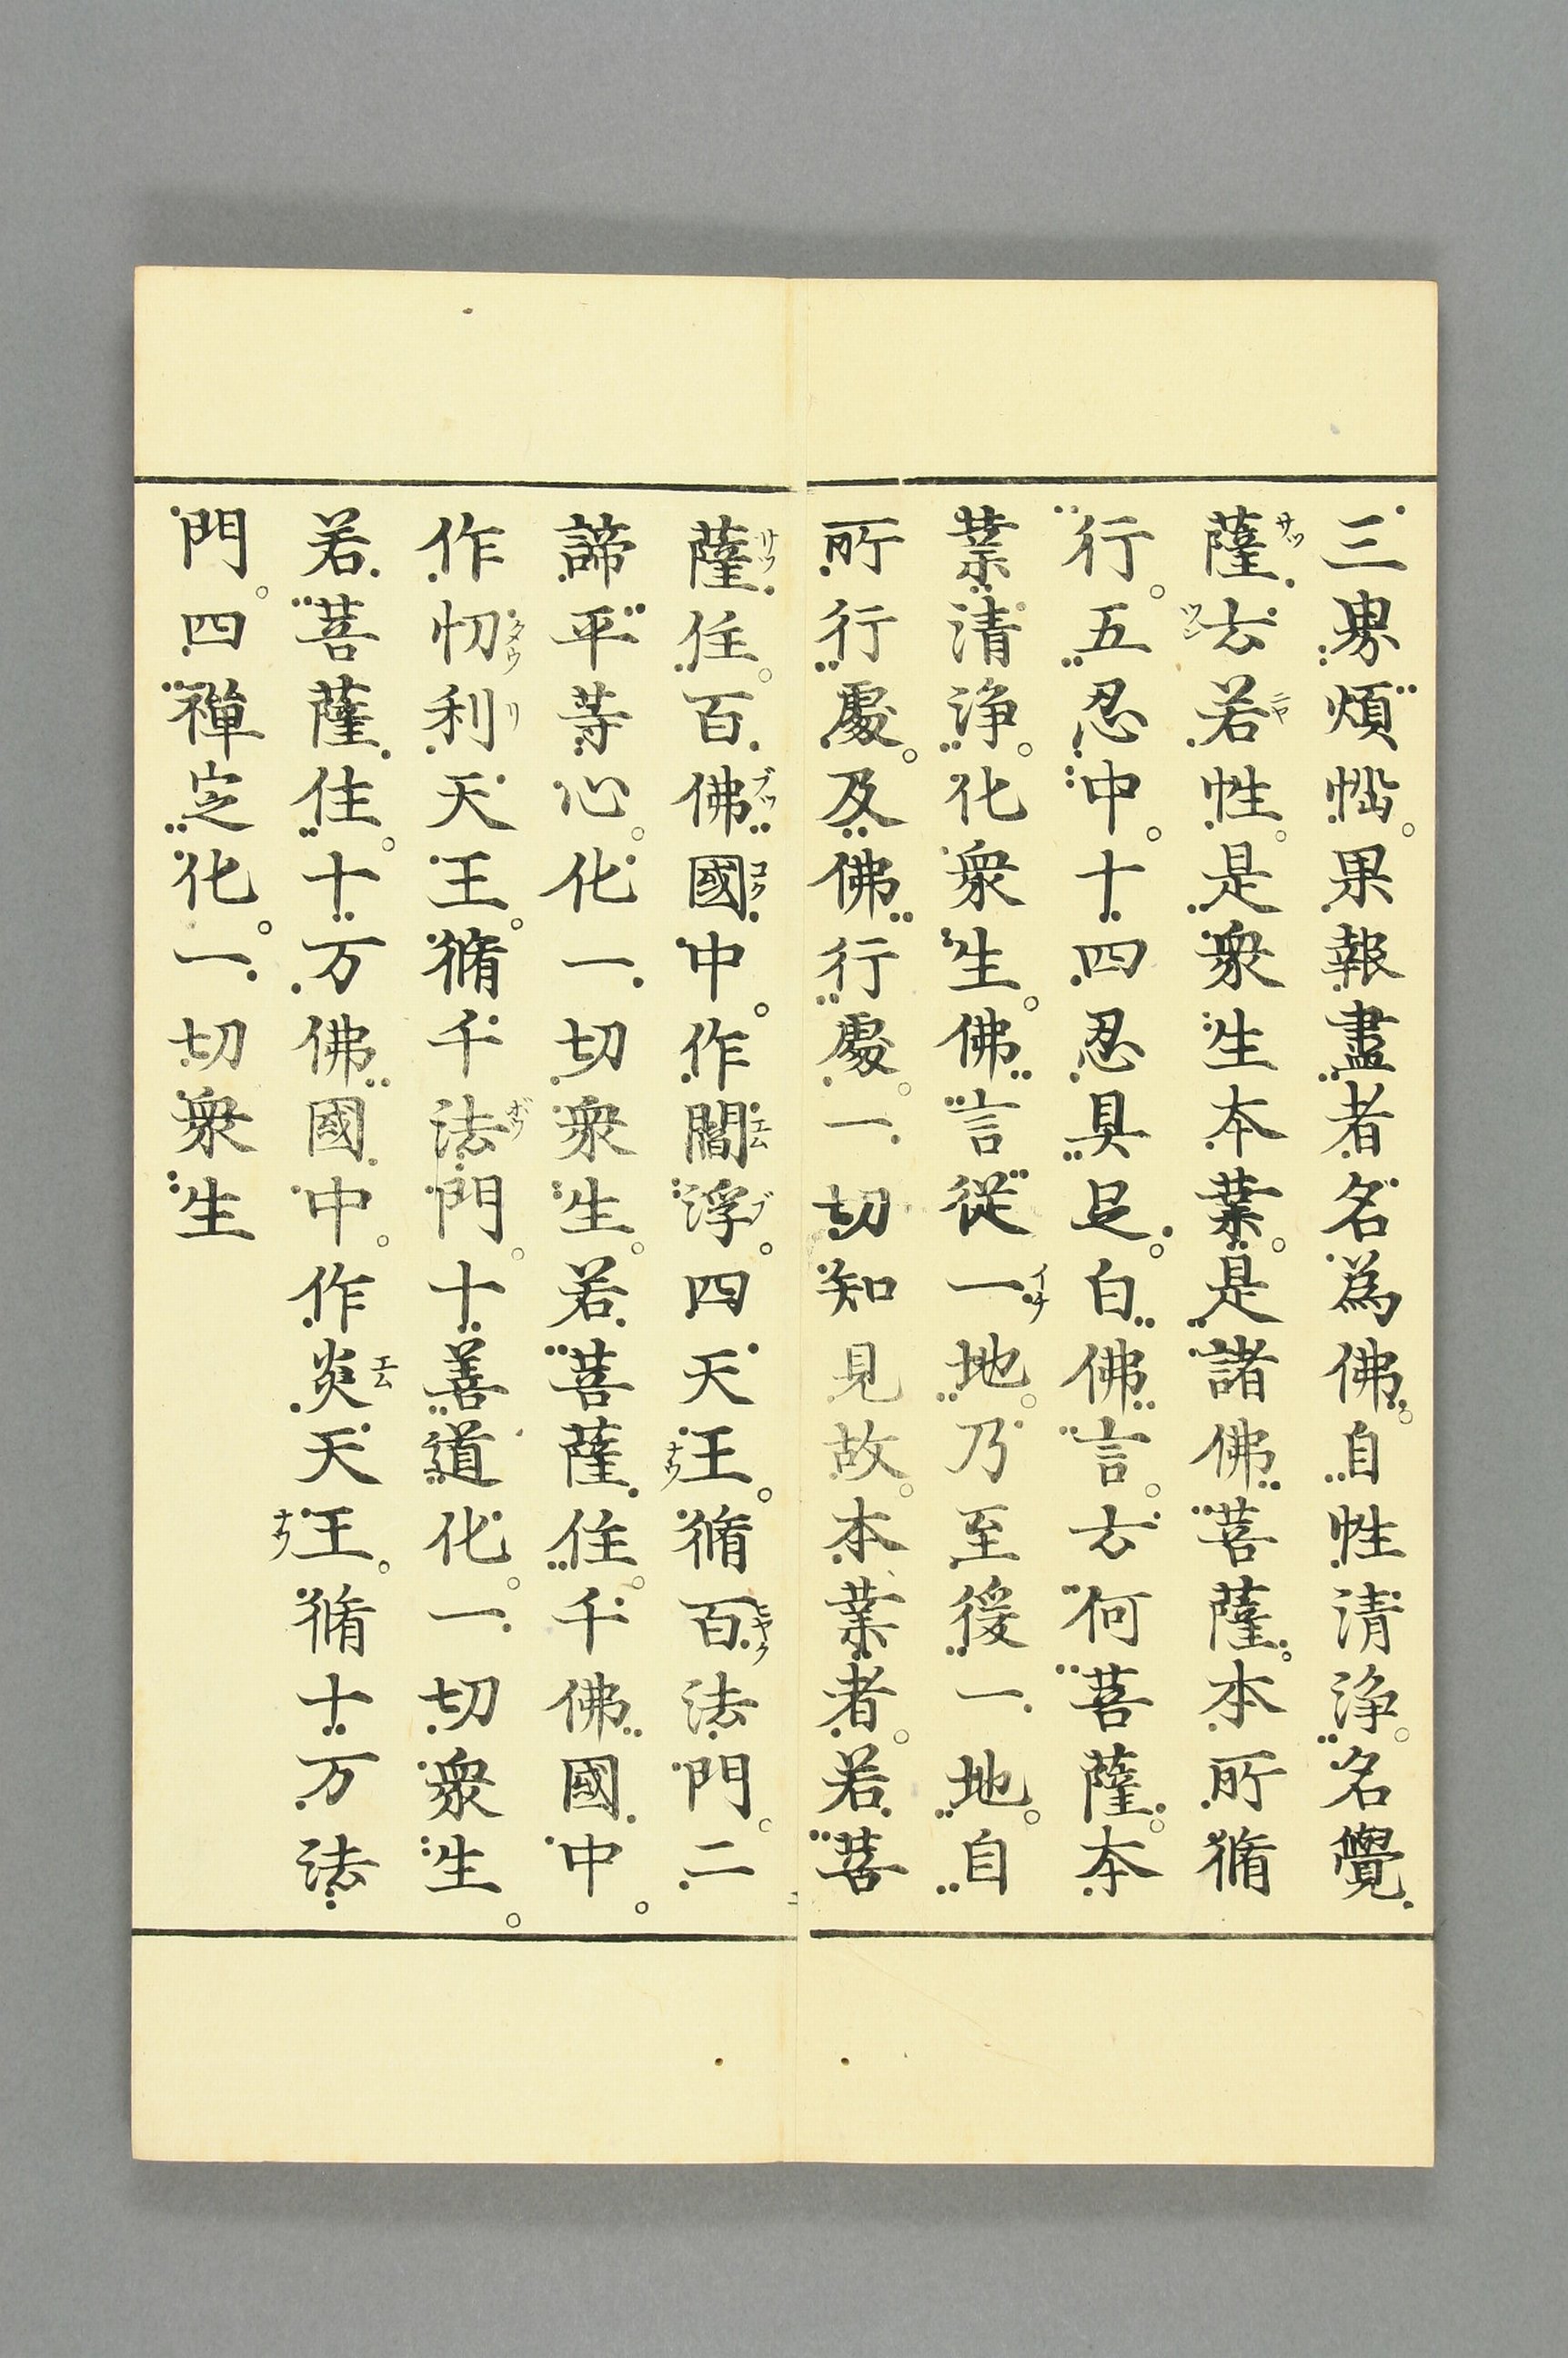 三界煩惱。果報盡者名為佛。自性清淨。名覺
薩云若性。是衆生本業。是諸佛菩薩。本所脩
行。五忍中。十四忍具足。白佛言。云何菩薩。本
業清淨。化衆生。佛言從一地。乃至後一地。自
所行處。及佛行處。一切知見故。本業者。若菩
薩住。百佛國中。作閻浮。四天王。脩百法門。二
諦平等心。化一切衆生。若菩薩住。千佛國中。
作忉利天王。脩千法門。十善道化。一切衆生。
若菩薩住。十万佛國中。作炎天王。脩十万法
門。四禪定化。一切衆生